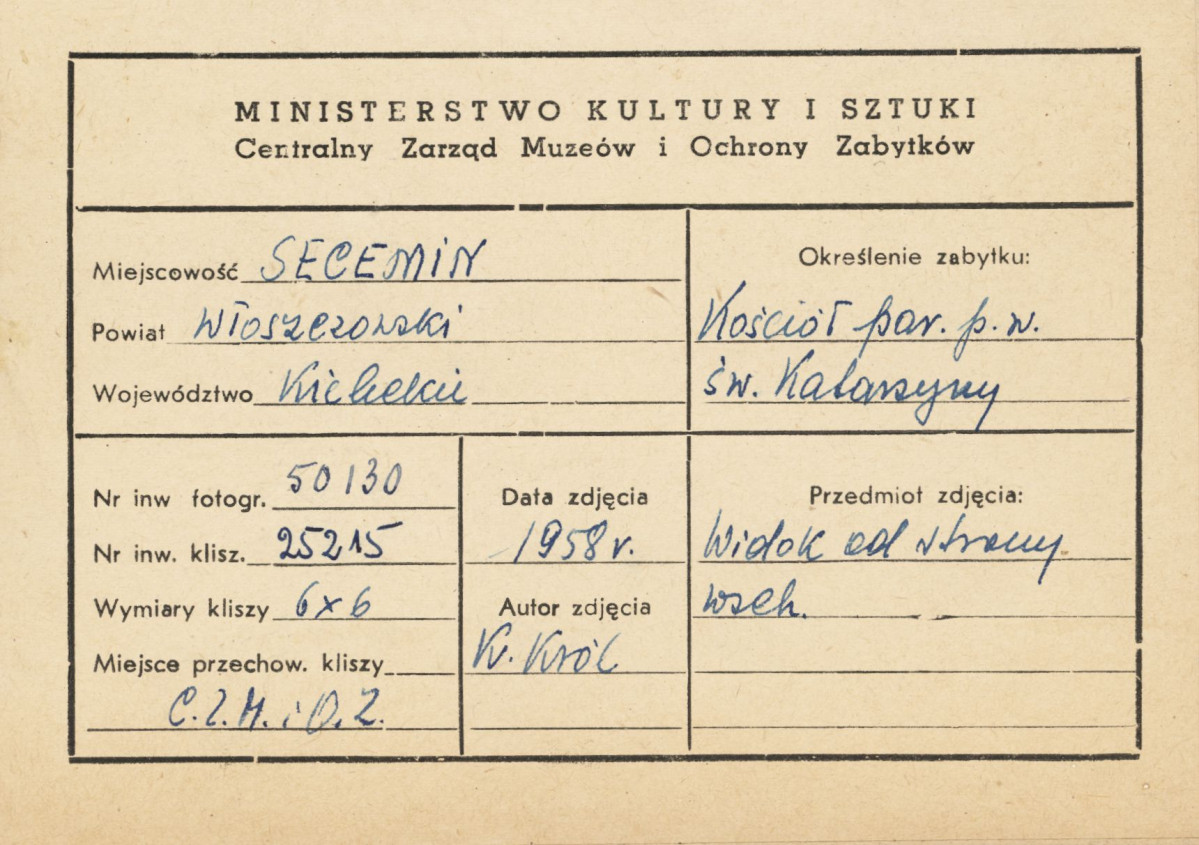 MINISTERSTWO KULTURY I SZTUKI
Centralny Zarząd Muzeów i Ochrony Zabytków
Miejscowość SECEMIN
Powiat Włoszczowski
Województwo Kieleckie
Określenie zabytku:
Kościół par. p.w.
św. Katarzyny
Nr inw fotogr. 50130
Nr inw. klisz. 25215
Wymiary kliszy 6x6
Miejsce przechow. kliszy
C.Z.M. i O.Z.
Data zdjęcia
1958 r.
Autor zdjęcia
K. Król
Przedmiot zdjęcia:
Widok od strony
wsch.